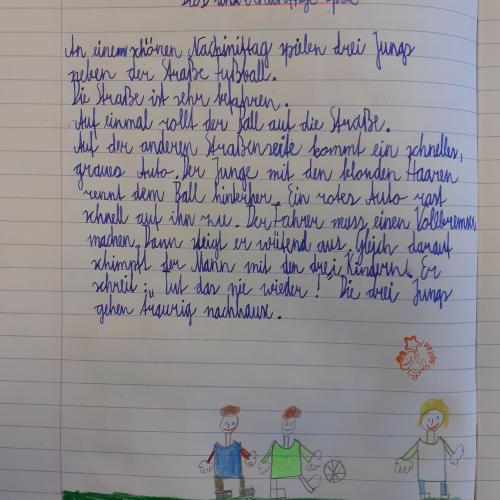 An einem schönen Nachmittag spielen drei Jungs
neben der Straße Fußball.
Die Straße ist sehr befahren.
Auf einmal rollt der Ball auf die Straße.
Auf der anderen Straßenseite kommt ein schnelles,
graues Auto. Der Junge mit den blonden Haaren
rennt dem Ball hinterher. Ein rotes Auto rast
schnell auf ihn zu. Der Fahrer muss einen Vollbremse
machen. Dann steigt er wütend aus. Glich darauf
schimpft der Mann mit den drei Kindern. Er
schreit: „Tut das nie wieder!" Die drei Jungs
gehen traurig nachhause.